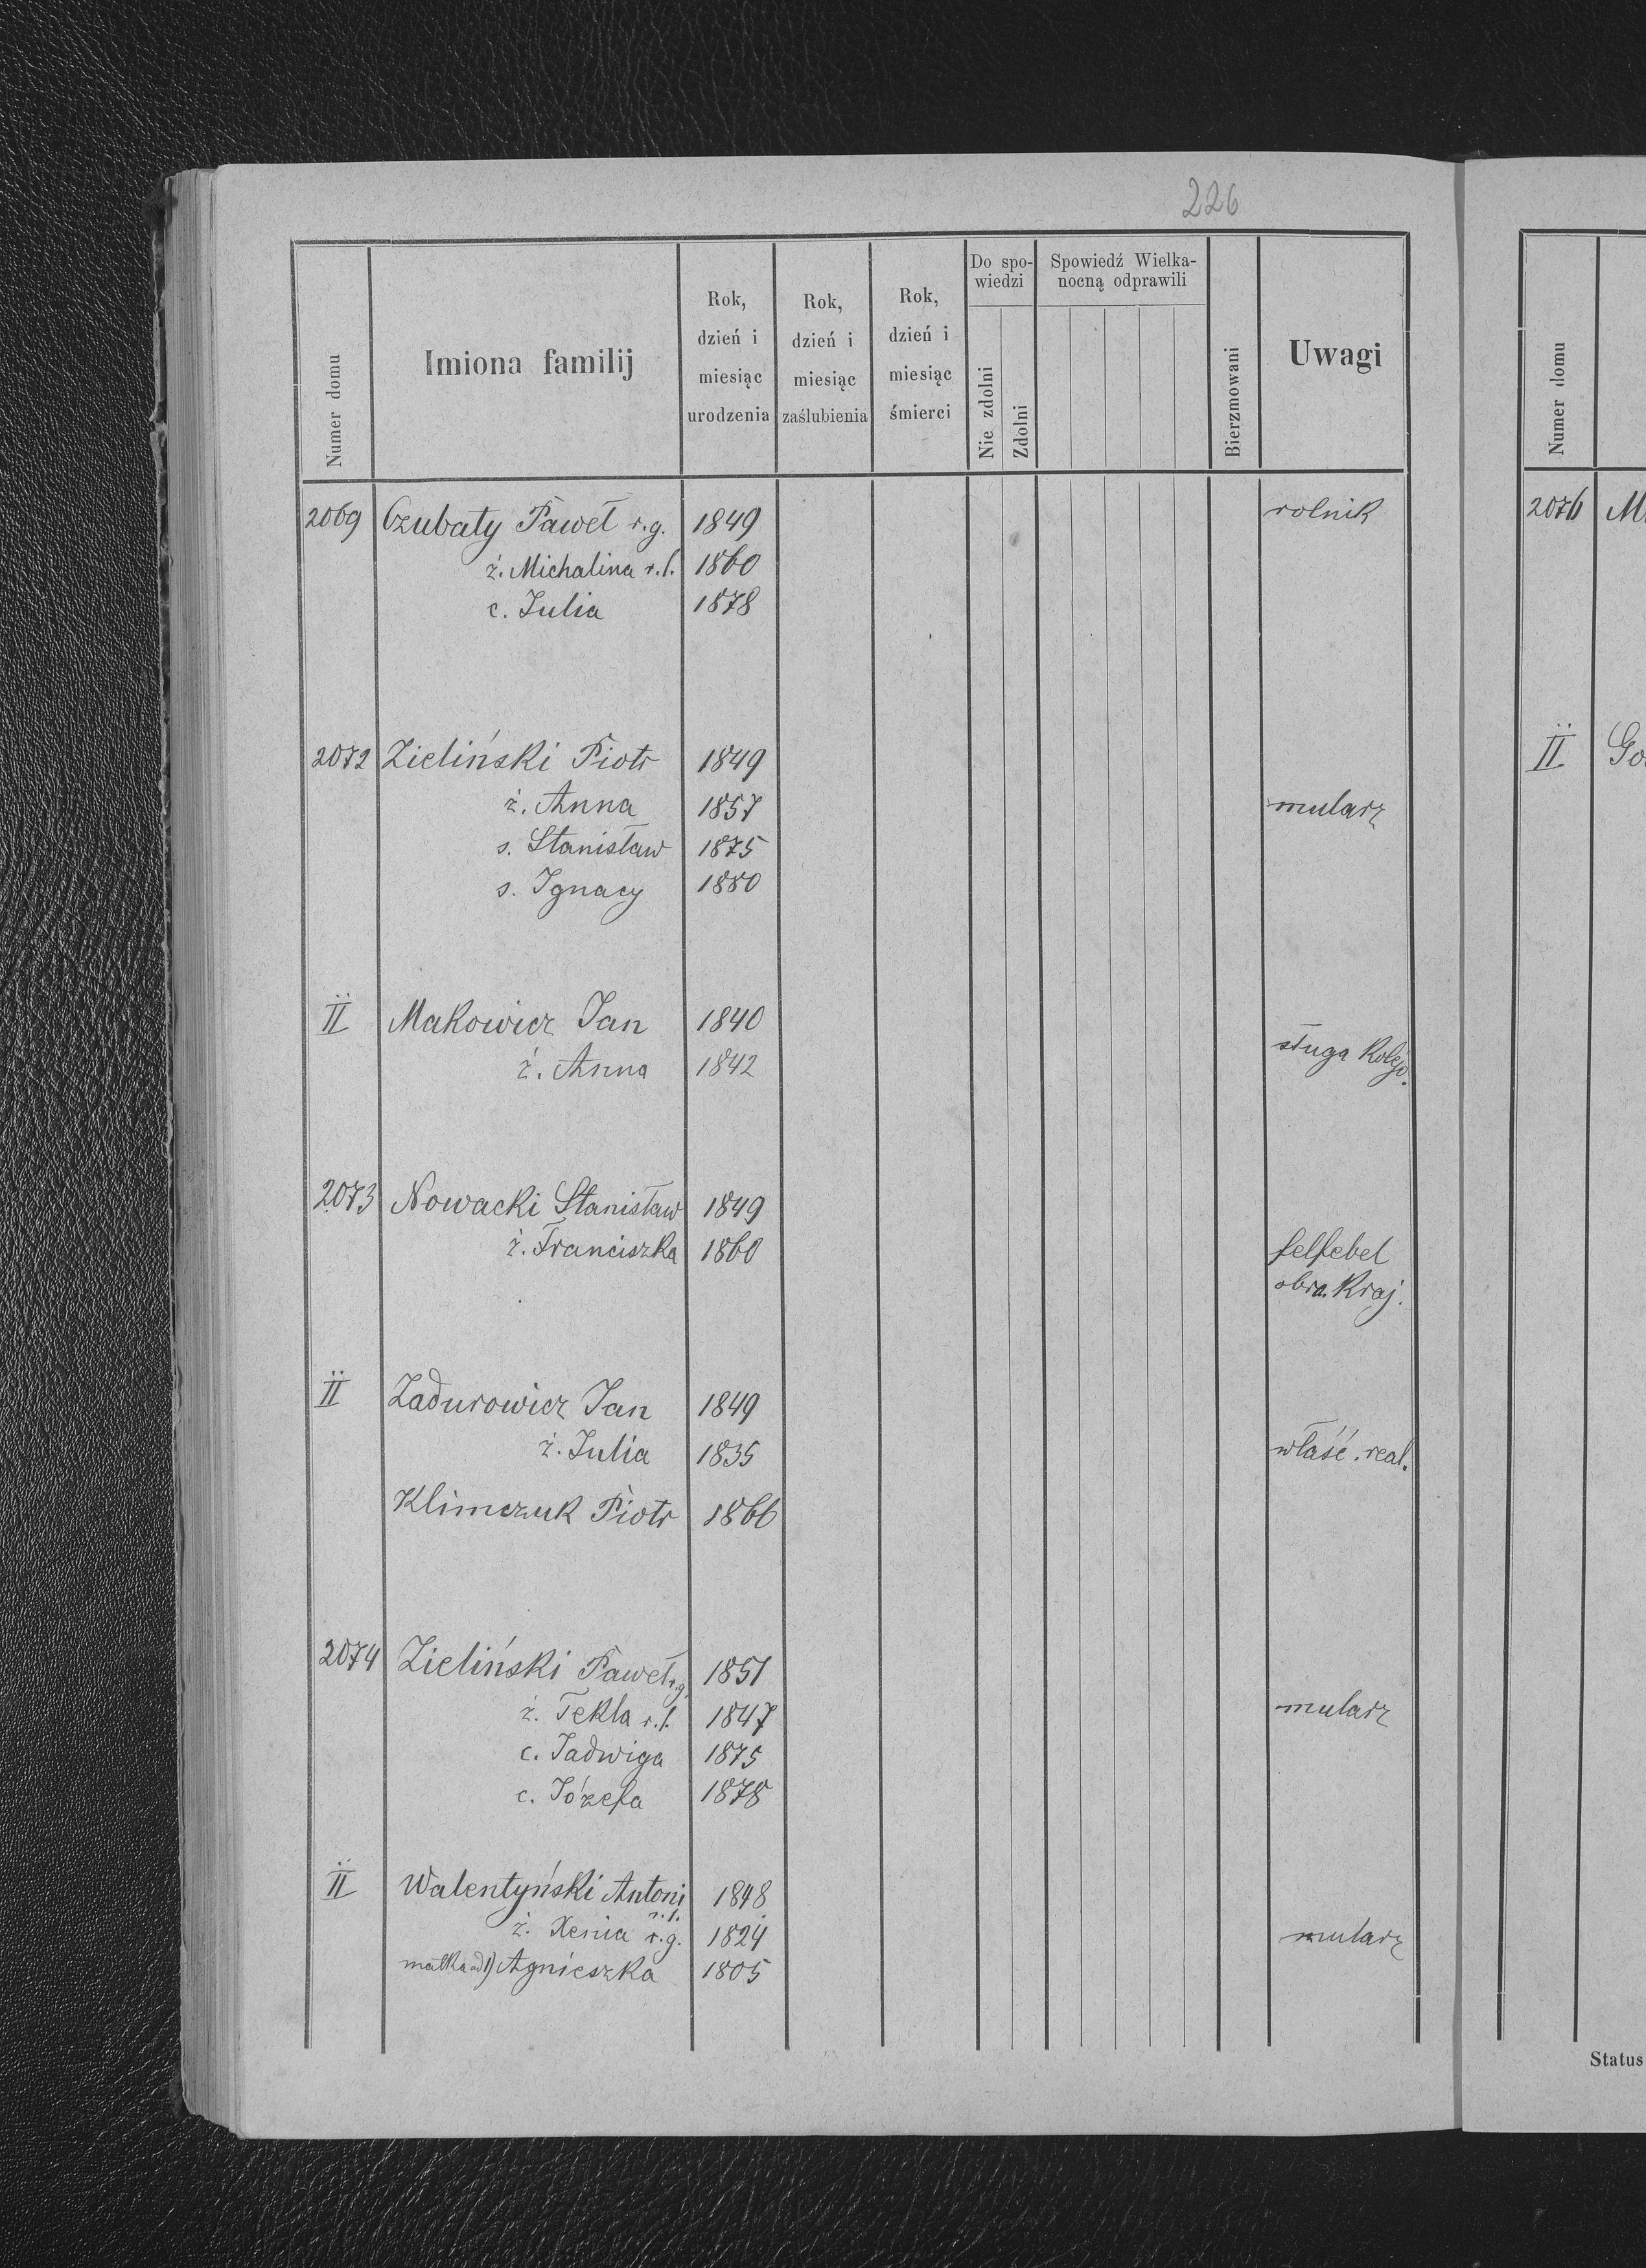 226
Numer domu
Imiona familij
Rok, dzień i miesiąc urodzenia
Rok, dzień i miesiąc zaślubienia
Rok, dzień i miesiąc śmierci
Do spo-
wiedzi
Nie zdolni
Zdolni
Spowiedź Wielka-
nocną odprawili
Bierzmowani
Uwagi
2069 Czubaty Paweł r.g. 1849 rolnik
ż. Michalina r.l. 1860
c. Julia 1878
2072 Zieliński Piotr 1849
ż. Anna 1857 mularz
s. Stanisław 1875
s. Ignacy 1880
II Makowicz Jan 1840
ż. Anna 1842 sługa kolejo.
2073 Nowacki Stanisław 1849
ż. Franciszka 1860 felfebel
obro. kraj.
II Zadurowicz Jan 1849
ż. Julia 1835 właść. real.
Klimczuk Piotr 1866
2074 Zieliński Paweł r.g. 1851
ż. Tekla r.l. 1847 mularz
c. Jadwiga 1875
c. Józefa 1878
II Walentyński Antoni r.l. 1848
ż. Xenia r.g. 1824 mularz
matka ad 1) Agnieszka 1805
Numer domu
2076 M
II Go
Status